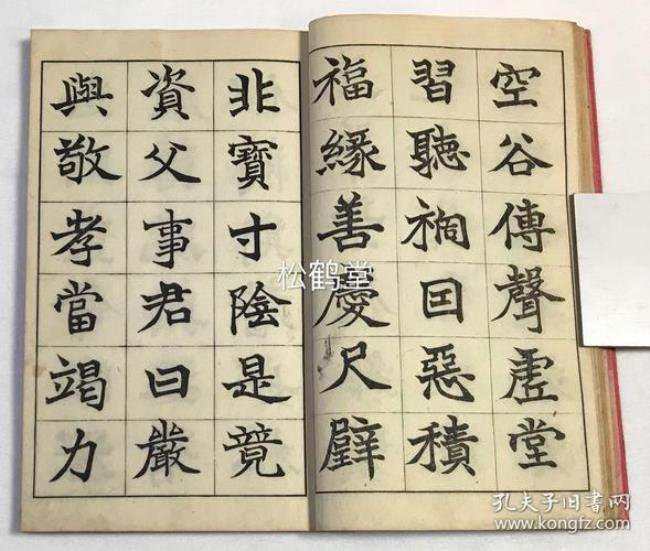 空谷傳聲虛堂
習聽禍因惡積
福緣善慶尺璧
非寶寸陰是競
資父事君曰嚴
與敬孝當竭力
松鹤堂
孔夫子旧书网
www.kongfz.com